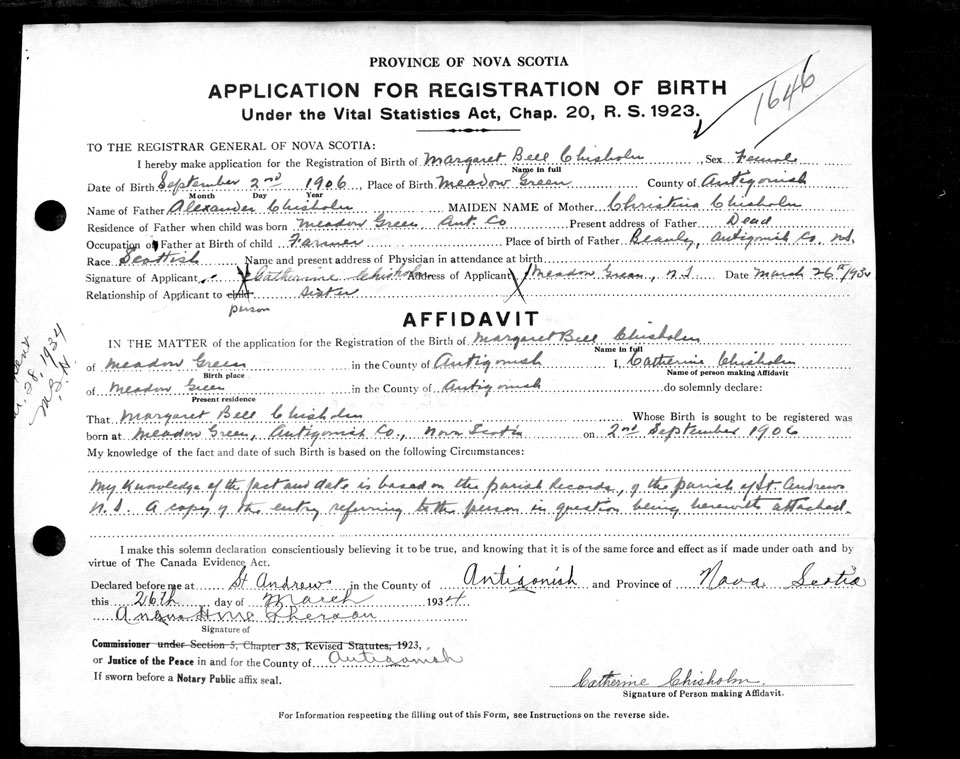 PROVINCE OF NOVA SCOTIA
APPLICATION FOR REGISTRATION OF BIRTH
1646
Under the Vital Statistics Act, Chap. 20, R. S. 1923.
TO THE REGISTRAR GENERAL OF NOVA SCOTIA:
I hereby make application for the Registration of Birth of Margaret Bell Chisholm, Sex Female
Name in full
Date of Birth September 2nd 1906, Place of Birth Meadow Green County of Antigonish
Month Day Year
Name of Father Alexander Chisholm MAIDEN NAME of Mother Christina Chisholm
Residence of Father when child was born Meadow Green, Ant. Co Present address of Father Dead
Occupation of Father at Birth of child Farmer Place of birth of Father Beauly, Antigonish Co., N.S.
Race Scottish Name and present address of Physician in attendance at birth
Signature of Applicant X Catherine Chisholm Address of Applicant Meadow Green, N.S. Date March 26th 1934
Relationship of Applicant to child sister
person
AFFIDAVIT
IN THE MATTER of the application for the Registration of the Birth of Margaret Bell Chisholm
Name in full
of Meadow Green in the County of Antigonish I, Catherine Chisholm
Birth place Name of person making Affidavit
of Meadow Green in the County of Antigonish do solemnly declare:
Present residence
That Margaret Bell Chisholm Whose Birth is sought to be registered was
born at Meadow Green, Antigonish Co., Nova Scotia on 2nd September 1906
My knowledge of the fact and date of such Birth is based on the following Circumstances:
My knowledge of the fact and date is based on the parish Records, of the parish of St. Andrews
N.S. A copy of the entry referring to the person in question being herewith attached.
I make this solemn declaration conscientiously believing it to be true, and knowing that it is of the same force and effect as if made under oath and by
virtue of The Canada Evidence Act.
Declared before me at St Andrews in the County of Antigonish and Province of Nova Scotia
this 26th day of March 1934
Angus H McPherson
Signature of
Commissioner under Section 5, Chapter 38, Revised Statutes, 1923,
or Justice of the Peace in and for the County of Antigonish
If sworn before a Notary Public affix seal.
Catherine Chisholm.
Signature of Person making Affidavit.
For Information respecting the filling out of this Form, see Instructions on the reverse side.
28, 1934